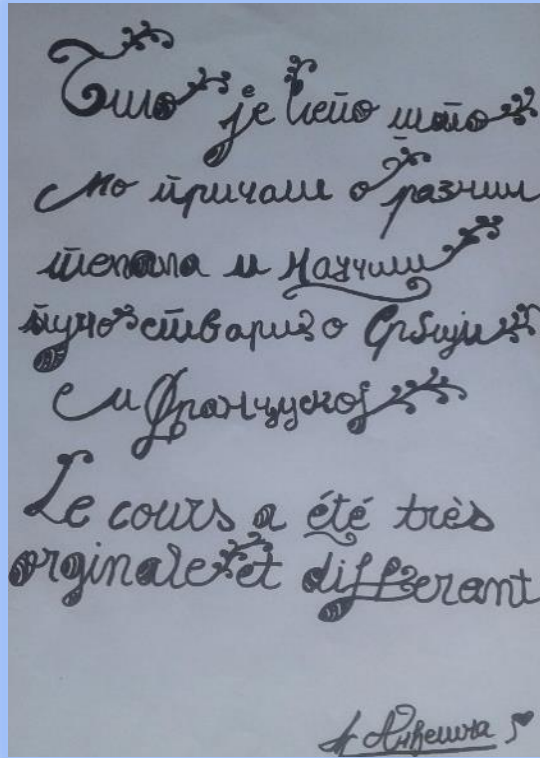 Било је лепо што
смо причали о разним
темама и научили
пуно ствари о Србији
и Француској
Le cours a été très
orginale et differant